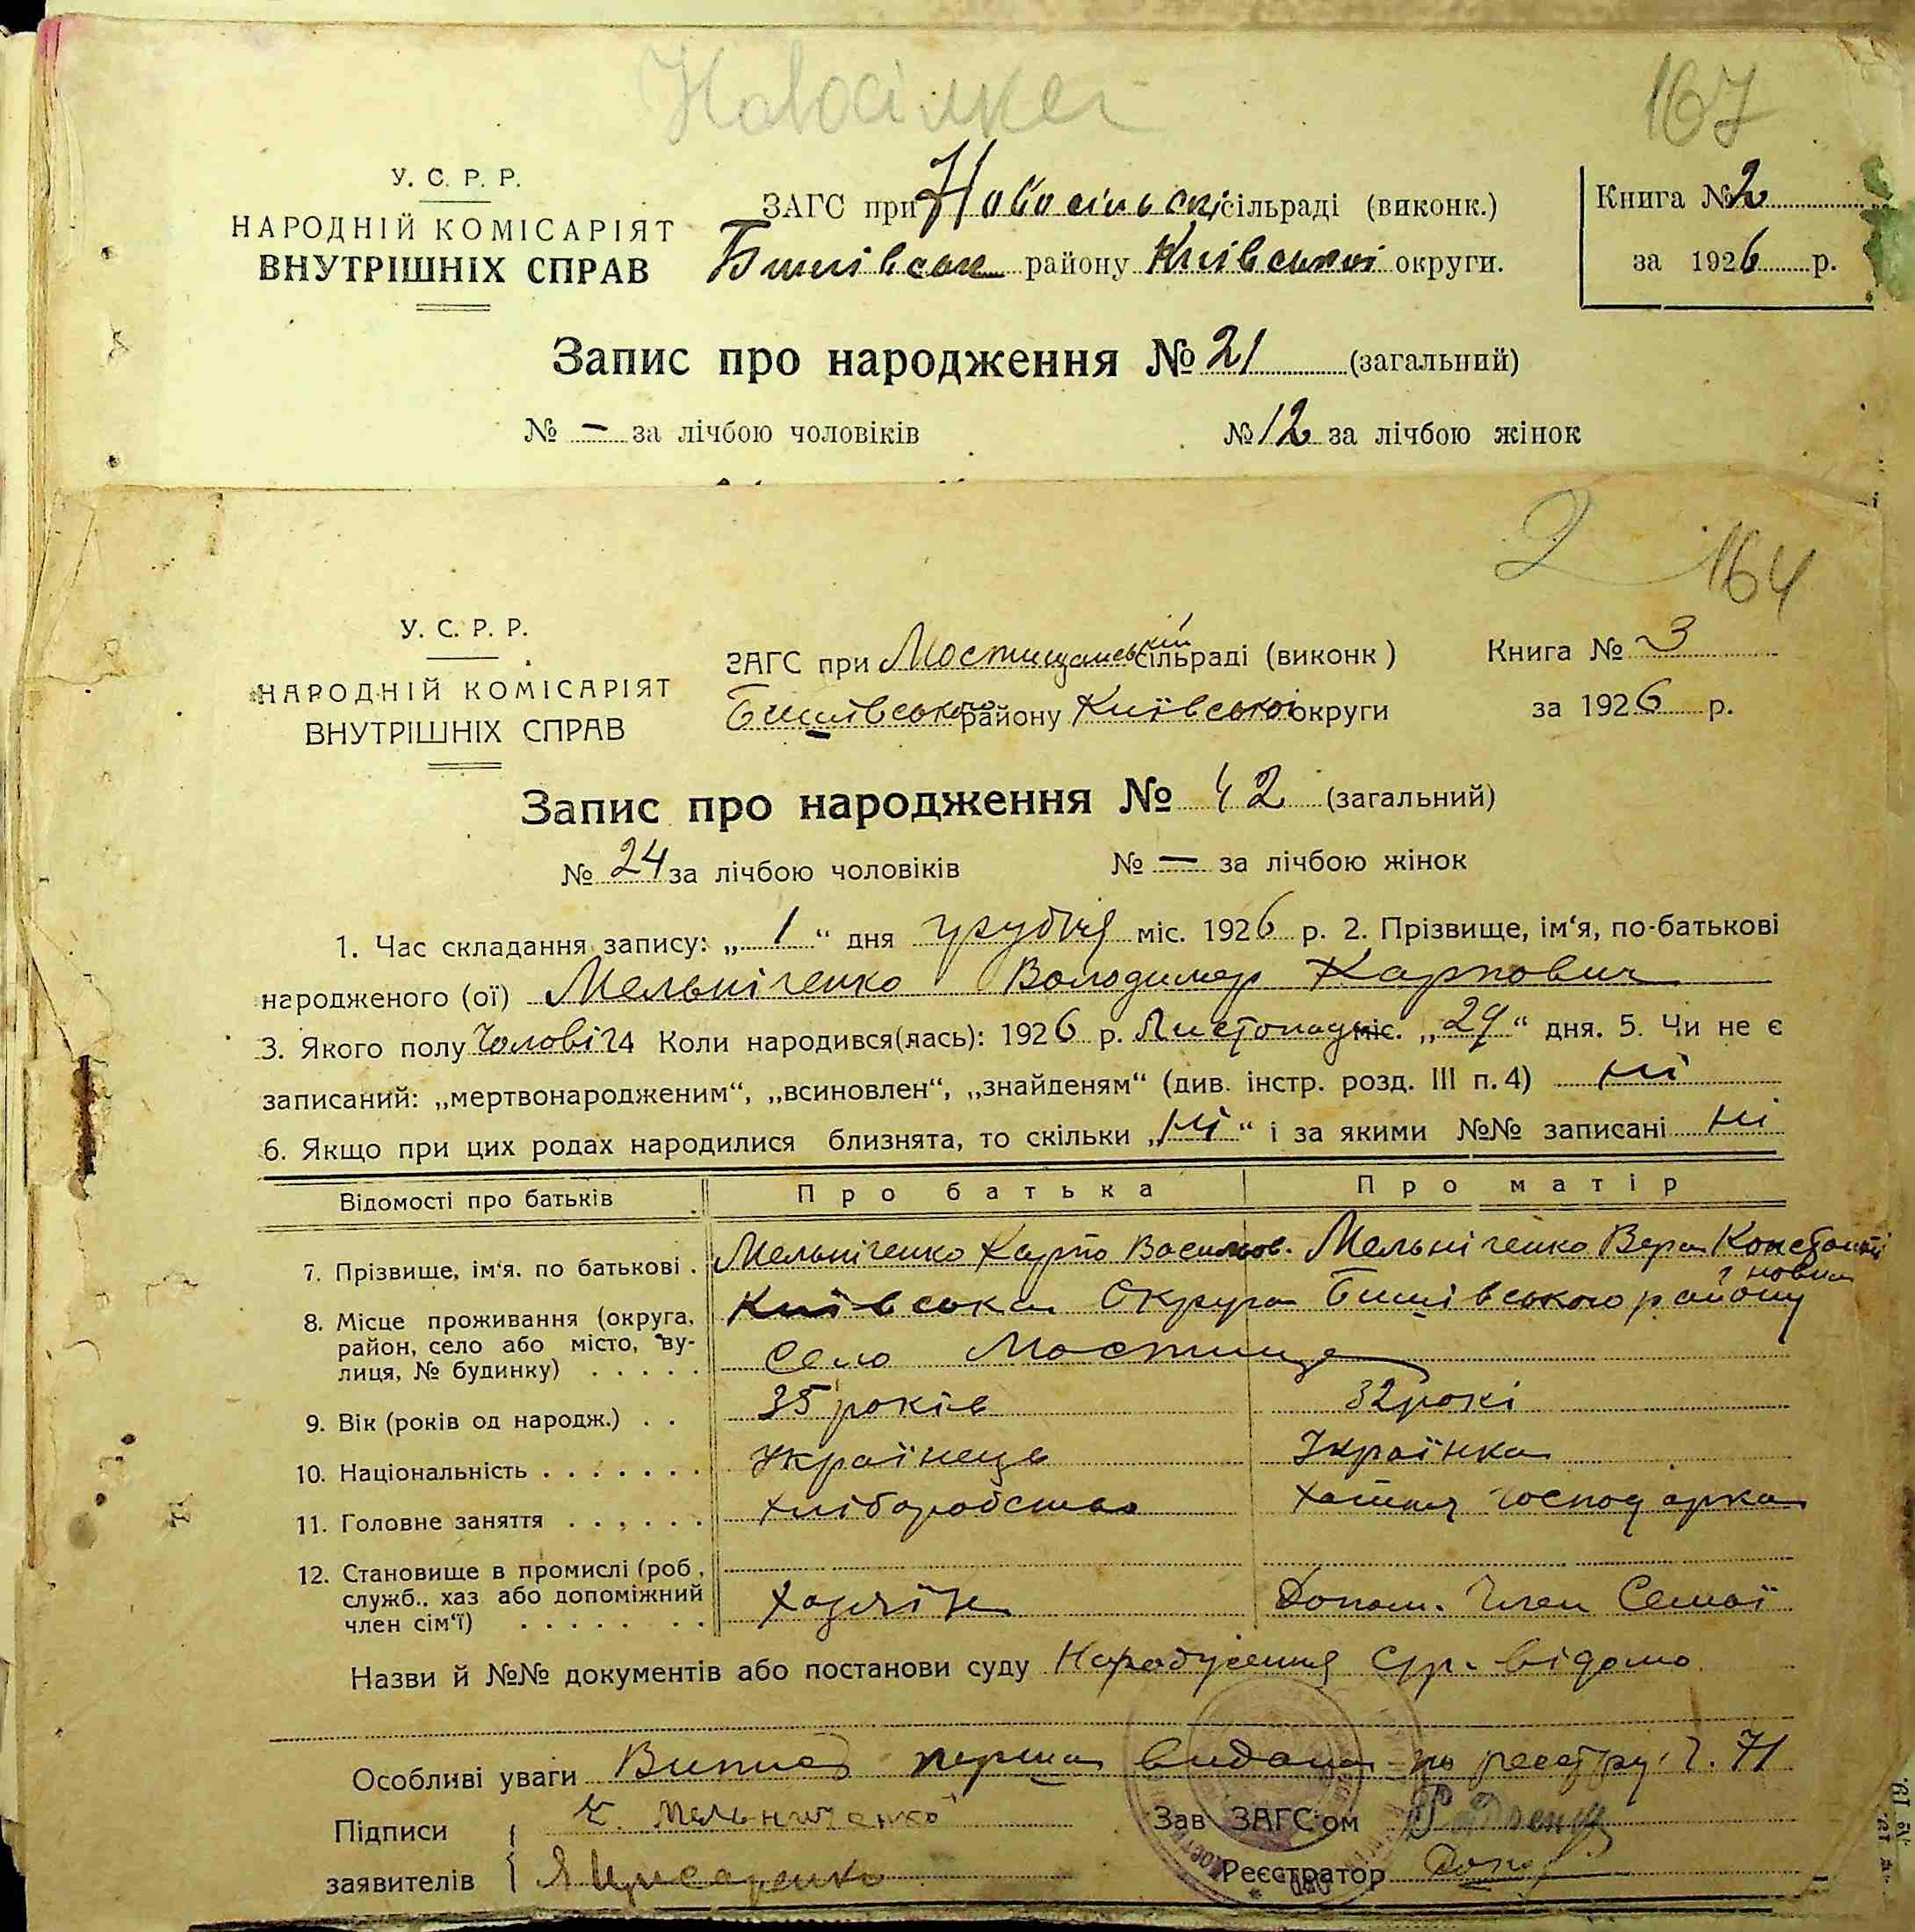 Новосілкі
167
У. С. Р. Р.
НАРОДНІЙ КОМІСАРІЯТ
ВНУТРІШНІХ СПРАВ
ЗАГС при Новосільскі сільраді (виконк.)
району Київської округи.
Книга № 2
за 1926 р.
Запис про народження № 21 (загальний)
№ — за лічбою чоловіків № 12 за лічбою жінок
2 164
У. С. Р. Р.
НАРОДНІЙ КОМІСАРІЯТ
ВНУТРІШНІХ СПРАВ
ЗАГС при Мостищанській сільраді (виконк )
Бишівського району Київської округи
Книга № 3
за 1926 р.
Запис про народження № 42 (загальний)
№ 24 за лічбою чоловіків № — за лічбою жінок
1. Час складання запису: „ 1 “ дня грудня міс. 1926 р. 2. Прізвище, ім‘я, по-батькові
народженого (ої) Мельніченко Володимер Карпович
3. Якого полу Чоловіч 4 Коли народився(лась): 1926 р. Листопад міс. „29“ дня. 5. Чи не є
записаний: „мертвонародженим“, „всиновлен“, „знайденям“ (див. інстр. розд. III п. 4) ні
6. Якщо при цих родах народилися близнята, то скільки „ні“ і за якими №№ записані ні
Відомості про батьків Про батька Про матір
7. Прізвище, ім‘я. по батькові . Мельніченко Карпо Васильов. Мельніченко Вера Константіновна
8. Місце проживання (округа, Київська Округа Бишівського району
район, село або місто, ву- село Мостище
лиця, № будинку) . . . . .
9. Вік (років од народж.) . . 35 років 32 рокі
10. Національність . . . . . . . Українець Українка
11. Головне заняття . . . . . . Хліборобство Хатня господарка
12. Становище в промислі (роб ,
служб.. хаз або допоміжний Хазяїн Допом. Член Семьї
член сім‘ї) . . . . . . . .
Назви й №№ документів або постанови суду Народження відомо
Особливі уваги Випис перша видана по реестру ч. 71
Підписи К. Мельниченко Зав ЗАГС‘ом
заявителів Реєстратор